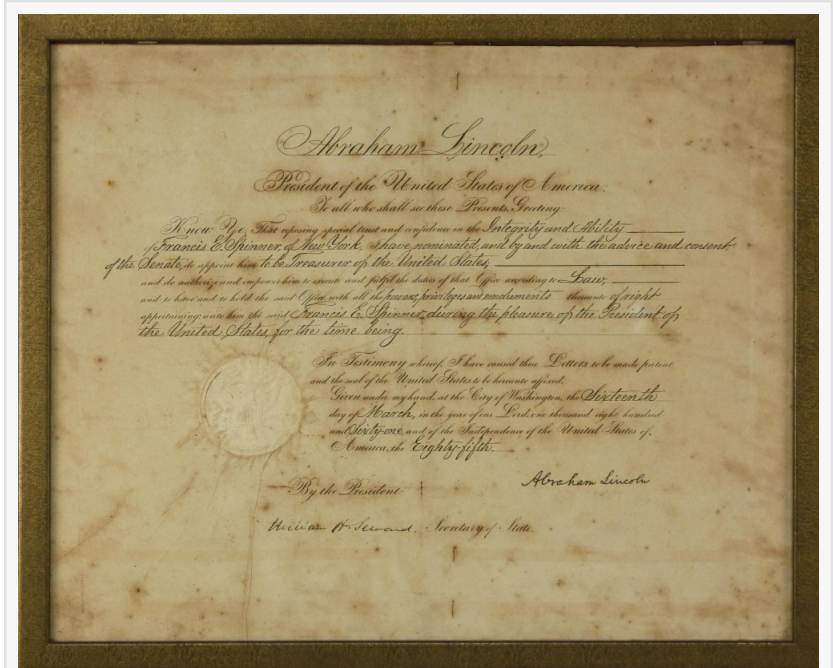 Abraham Lincoln,
President of the United States of America.
To all who shall see these Presents, Greeting
Know Ye, That reposing special trust and confidence in the Integrity and Ability
of Francis E. Spinner, of New York, I have nominated, and by and with the advice and consent
of the Senate, do appoint him to be Treasurer of the United States,
and do authorize and empower him to execute and fulfil the duties of that Office according to Law;
and to have and to hold the said Office with all the powers, privileges and emoluments thereunto of right
appertaining unto him the said Francis E. Spinner, during the pleasure of the President of
the United States, for the time being.
In Testimony whereof, I have caused these Letters to be made patent
and the seal of the United States to be hereunto affixed.
Given under my hand, at the City of Washington, the Sixteenth
day of March, in the year of our Lord, one thousand eight hundred
and Sixty-one, and of the Independence of the United States of
America, the Eighty-fifth.
Abraham Lincoln
By the President
William H. Seward. Secretary of State